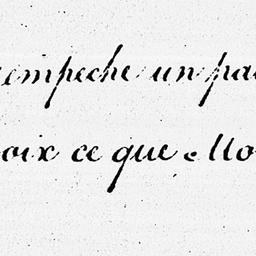 empeche un pa
oix ce que Mo